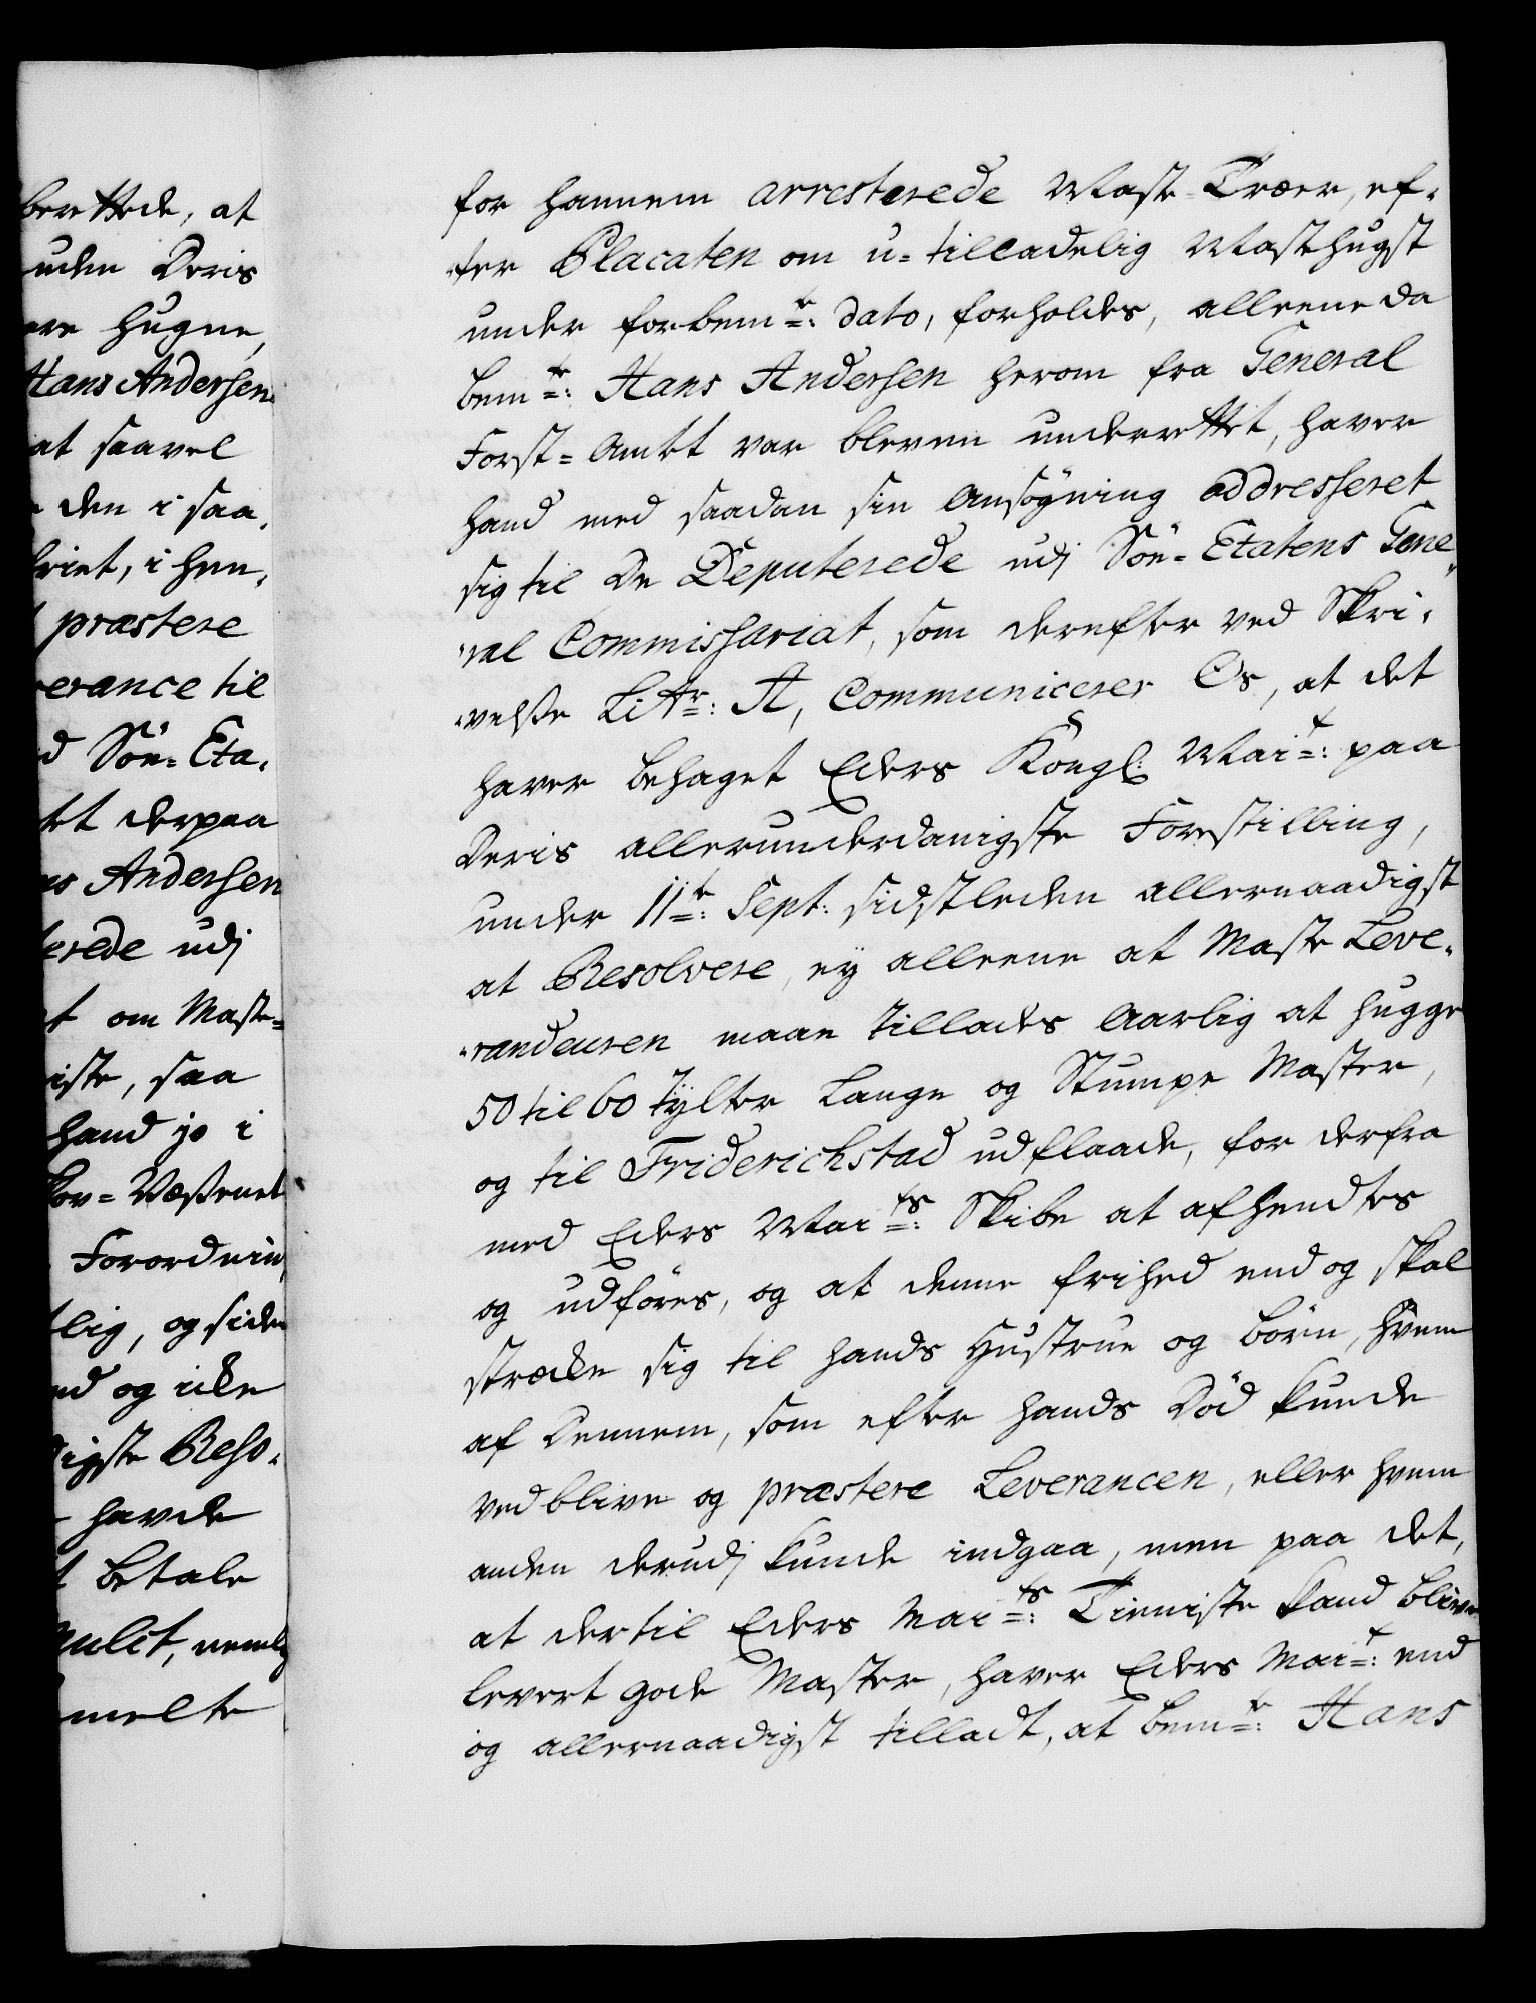 berettede, at
uden Deris
ere hugne,
Hans Andersen
at saavel
den i saa-
i hen-
præstere
erance til
d Söe=Eta-
tet derpaa
ns Andersen
erede udj
t om Maste=
iste, saa
hand jo i
kov=Væßenet
Forordnin
lig, og siden
nd og icke
digste Reso-
havde
t betale
Mulct, nemlig
melte
for hannem arresterede Mast-Træer, ef-
-ter Placaten om u=tilladelig Masthugst
under forbemte: dato, forholdes, alleene da
bemte: Hans Andersen herom fra General
Forst=Amtet var bleven underrettet, haver
hand med saadan sin Ansögning addresseret
sig til De Deputerede udj Söe=Etatens Gene-
-ral Commissariat, som derefter ved Skri-
-velße Littr: A, Communicerer Os, at det
haver behaget Eders Kongl: Mait: paa
Deris allerunderdanigste Forestilling,
under 11te: Sept: sidstleden allernaadigst
at Resolvere, ey alleene at Maste Leve-
-randeuren maae tillades Aarlig at hugge
50 til 60 Tylter Lange og Stumpe Master,
og til Friderichstad udflaade, for derfra
med Eders Maits: Skibe at afhendtes
og udföres, og at denne frihed end og skal
strække sig til hands Hustrue og Börn, hvem
af Dennem, som efter hands Död kunde
vedblive og præstere Leverancen, eller hvem
anden derudj kunde indgaa, men paa det,
at dertil Eders Maits: Tieniste kand blive
levert gode Master, haver Eders Mait: end
og allernaadigst tilladt, at bemte: Hans